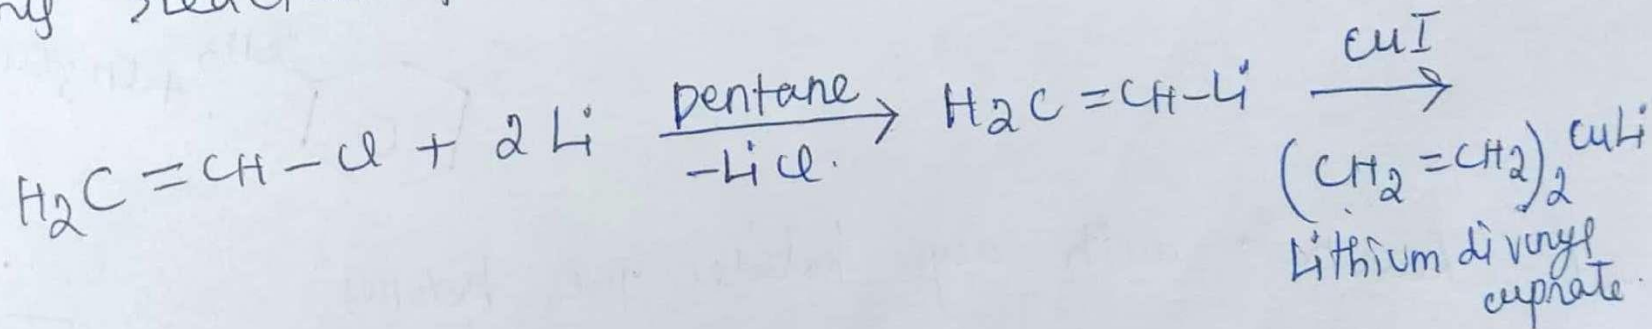 H2C=CH-Cl + 2Li pentane -LiCl. H2C=CH-Li CuI
(CH2=CH2)2 CuLi
Lithium divinyl
cuprate.